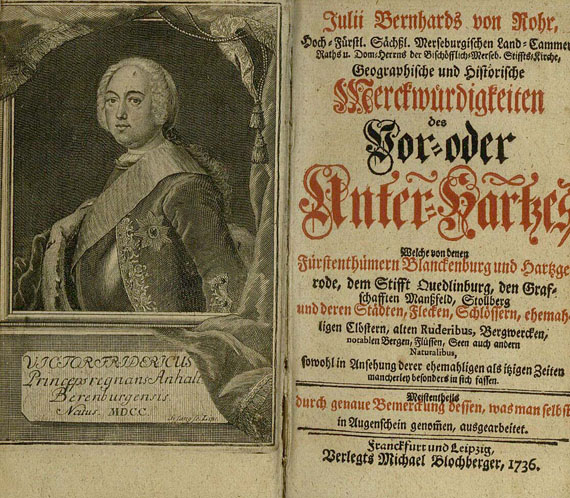 VICTOR FRIDERICUS
Princeps regnans Anhalt
Berenburgensis
Natus MDCC.
Julii Bernhards von Rohr,
Hoch-Fürstl. Sächßl. Merseburgischen Land-Cammer
Raths u. Dom-Herrns der Bischöfflich-Merseb. Stiffts-Kirche,
Geographische und Historische
Merckwürdigkeiten
des
Vor- oder
Unter-Hartzes
Welche von denen
Fürstenthümern Blanckenburg und Hartzge
rode, dem Stifft Quedlinburg, den Graf-
schafften Manßfeld, Stollberg
und deren Städten, Flecken, Schlössern, ehemah-
ligen Clöstern, alten Ruderibus, Bergwercken,
notablen Bergen, Flüssen, Seen auch andern
Naturalibus,
sowohl in Ansehung derer ehemahligen als itzigen Zeiten
mancherley besonders in sich fassen.
Meistentheils
durch genaue Bemerckung dessen, was man selbst
in Augenschein genommen, ausgearbeitet.
Franckfurt und Leipzig,
Verlegts Michael Blochberger, 1736.